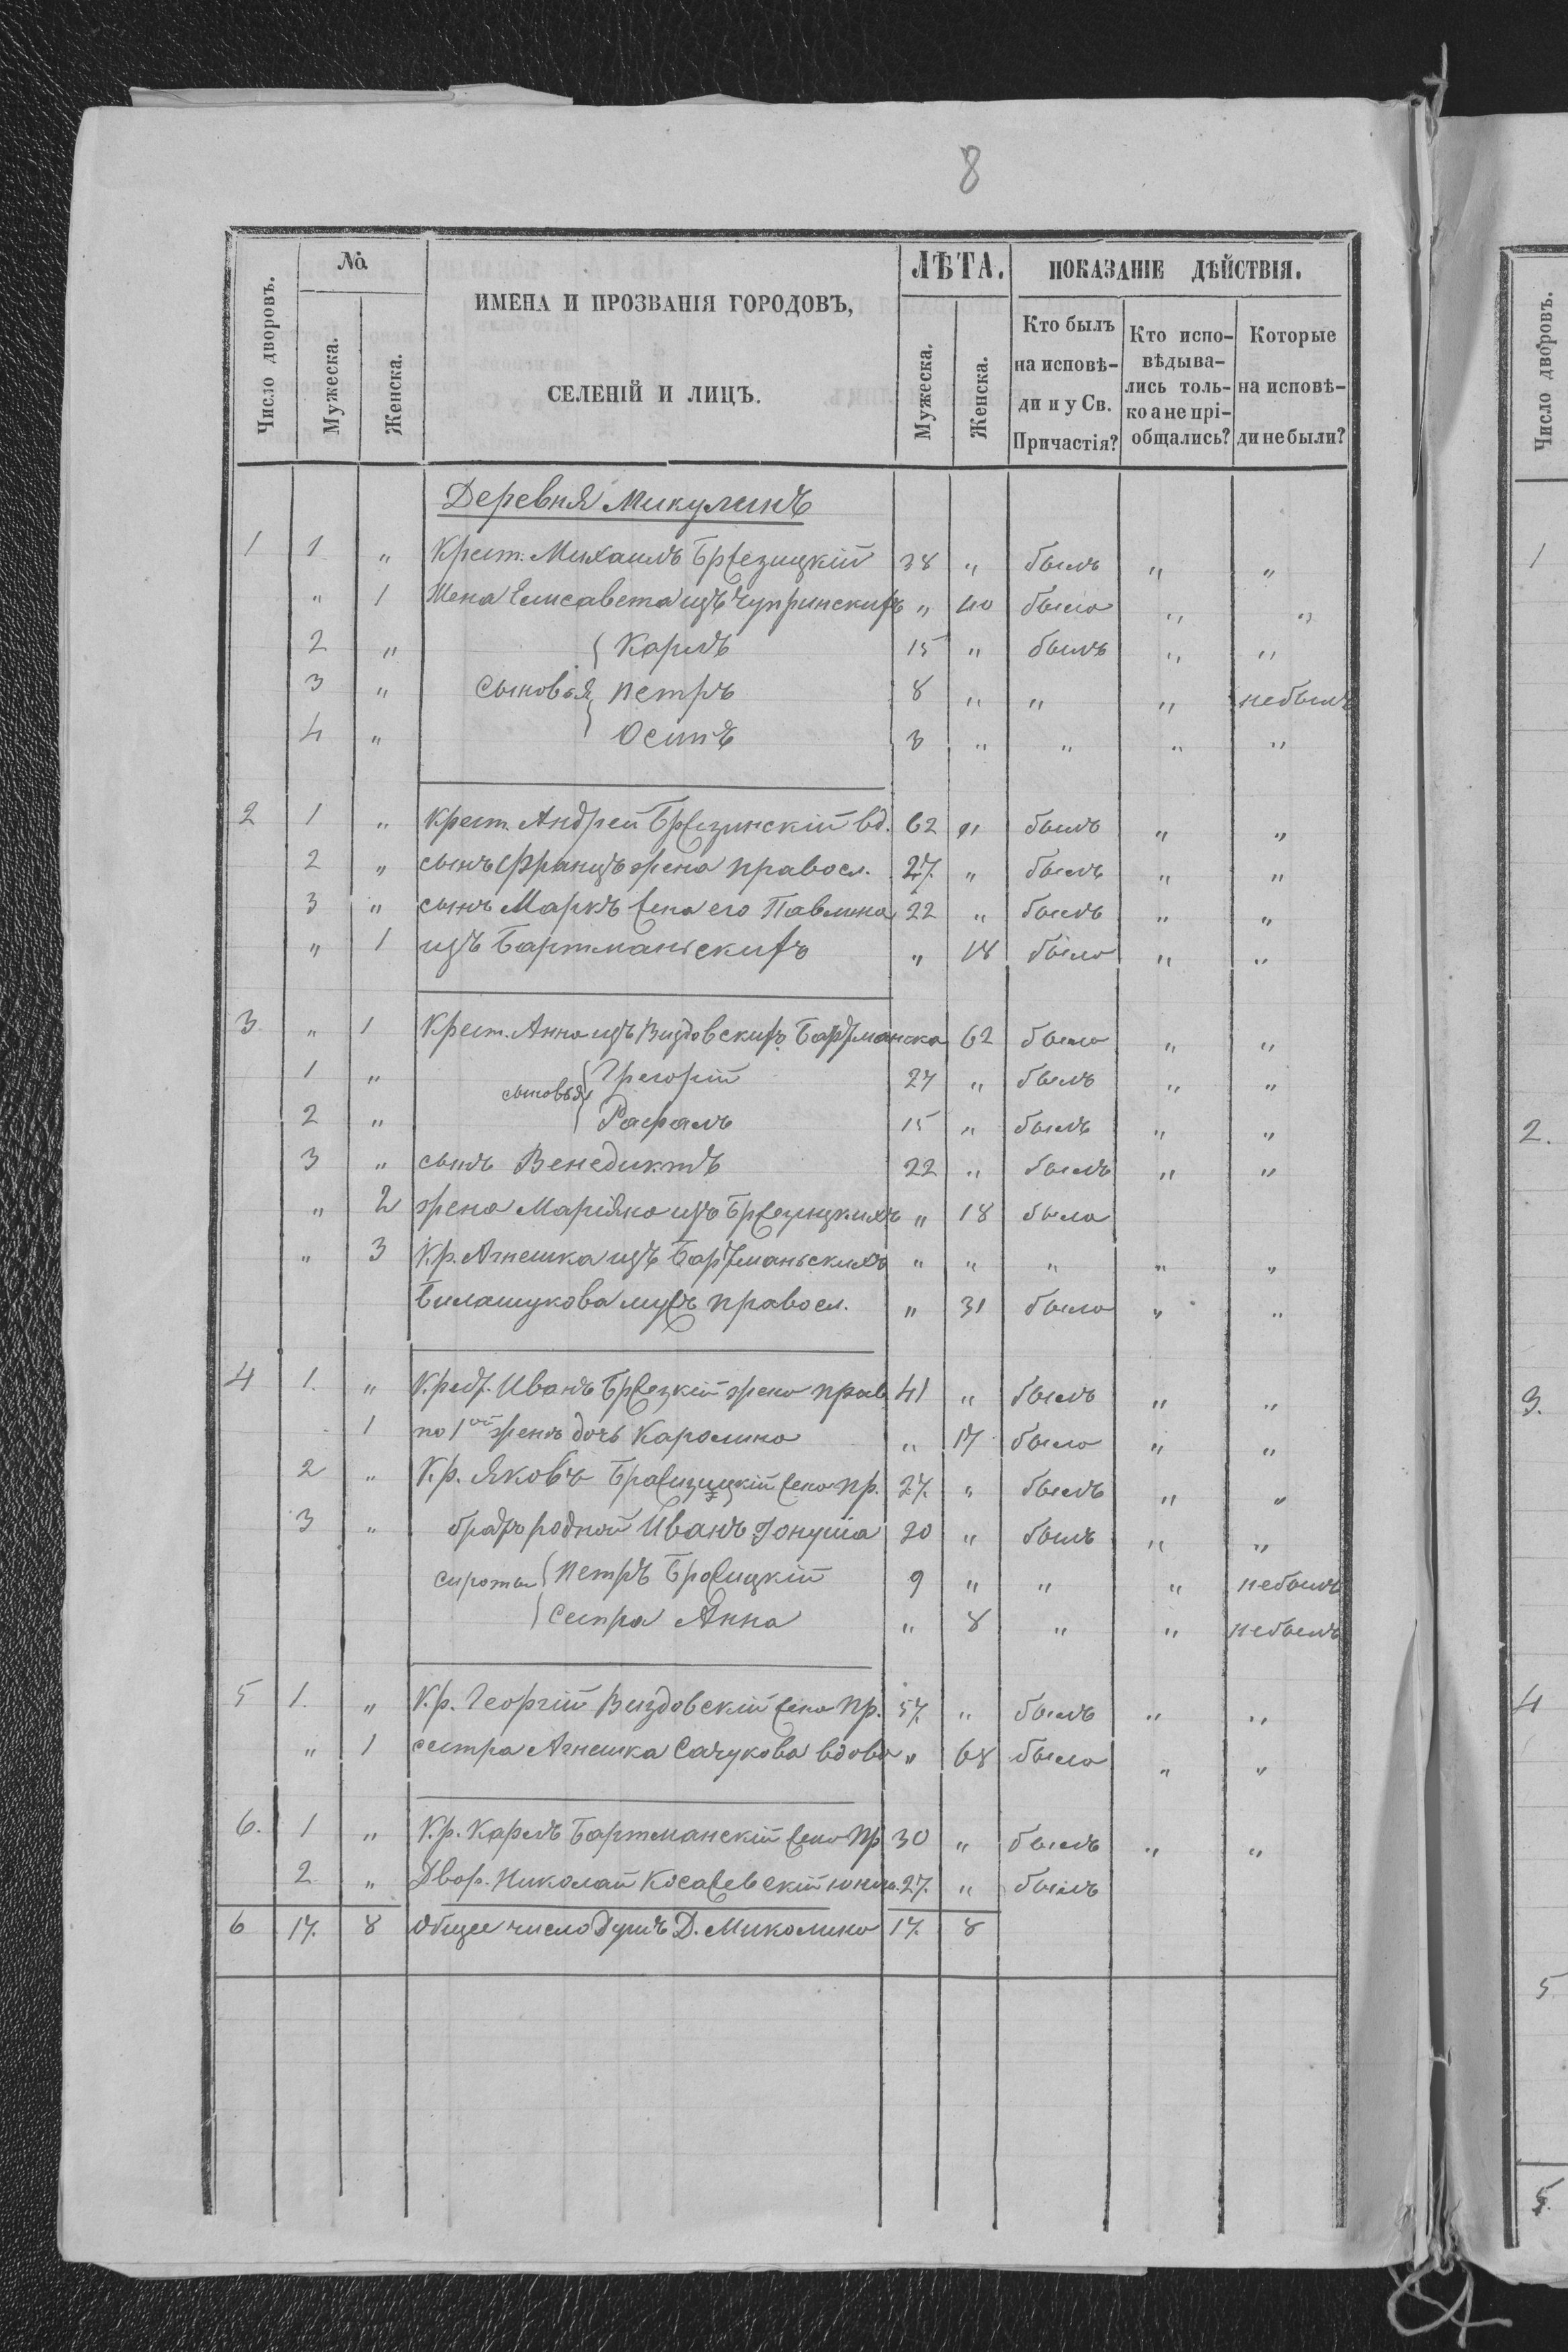 8
Число дворовъ. № Мужеска. Женска. ИМЕНА И ПРОЗВАНІЯ ГОРОДОВЪ, СЕЛЕНІЙ И ЛИЦЪ. ЛѢТА. Мужеска. Женска. ПОКАЗАНІЕ ДѢЙСТВІЯ. Кто былъ на исповѣди и у Св. Причастія? Кто исповѣдывались только а не пріобщались? Которые на исповѣди небыли?
Деревня Микулинъ
1 1 " Крест. Михаилъ Бржезицкій 38 " былъ " "
" 1 Жена Елисавета изъ Чупринскихъ " 40 была " "
2 " Карлъ 15 " былъ " "
3 " Сыновья Петръ 8 " " " небылъ
4 " Осипъ 3 " " " "
2 1 " Крест. Андрей Бржезинскій вд. 62 " былъ " "
2 " сынъ Францъ жена правосл. 27. " былъ " "
3 " сынъ Маркъ жена его Павлина 22 " былъ " "
" 1 изъ Бартманьскихъ " 18 была " "
3 " 1 Крест. Анна изъ Виздовскихъ Бартманска 62 была " "
1 " сыновья Грегорій 27 " былъ " "
2 " Рафалъ 15 " былъ " "
3 " сынъ Венедиктъ 22 " былъ " "
" 2 жена Маріяна изъ Бржезицкихъ " 18 была
" 3 Кр. Агнешка изъ Бартманьскихъ " " " " "
Билашукова мужъ правосл. " 31 была " "
4 1. " Крест. Иванъ Бржезкій жена прав 41 " былъ " "
1 по 1ой женѣ дочь Каролина " 17 была " "
2 " Кр. Яковъ Бражизицкій жена пр. 27. " былъ " "
3 " братъ родной Иванъ юнуша 20 " былъ " "
сироты Петръ Бражицкій 9 " " " небылъ
сестра Анна " 8 " " небылъ
5 1. " Кр. Георгій Виздовскій жена пр. 57. " былъ " "
" 1 сестра Агнешка Сачукова вдова " 68 была " "
6. 1 " Кр. Карлъ Бартманскій жена пр 30 " былъ " "
2 " Двор. Николай Косажевскій юнош. 27. " былъ
6 17. 8 Общее число душъ Д. Миколино 17. 8
Число дворовъ.
1
2.
3.
4
5
5.